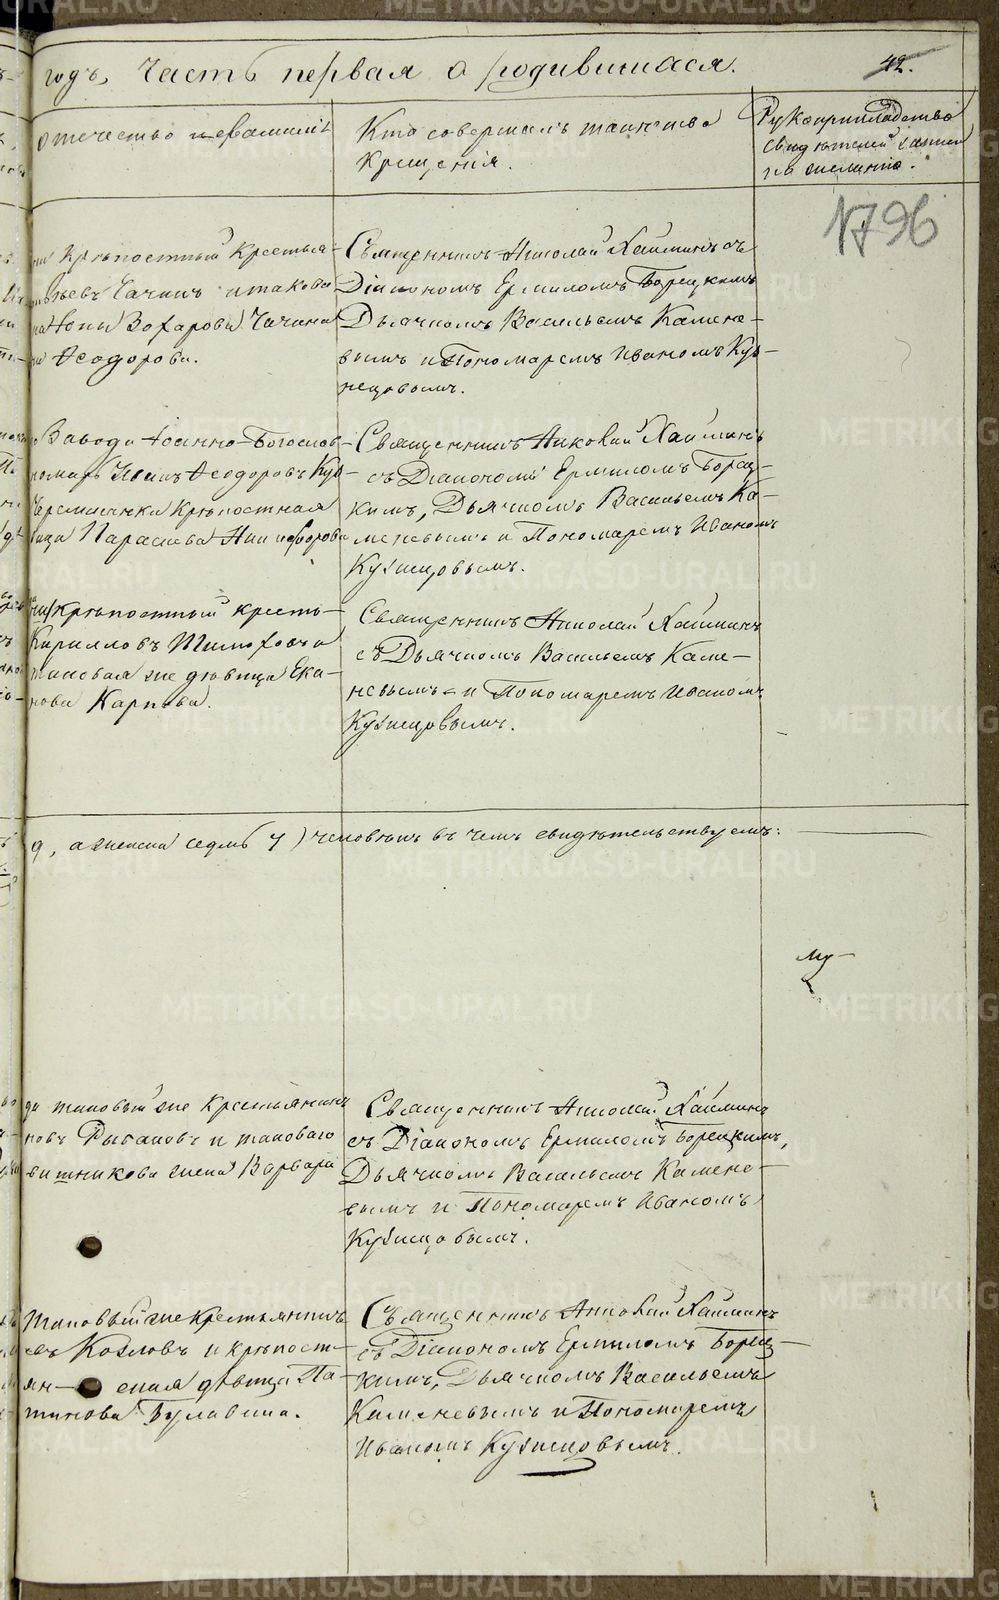 годъ, Часть первая о родившихся.
42.
отчество и фамилія
Кто совершалъ таинство
крещенія.
Рукоприкладство
свидѣтелей записи
по желанію.
1796
крѣпостный крестья-
Чагинъ и такова
Захарова Чагина
Ѳеодорова.
Священникъ Николай Хайминъ съ
Діакономъ Ермиломъ Борецкимъ
Дьячкомъ Васильемъ Камене-
вымъ и Пономаремъ Иваномъ Куз-
нецовымъ.
Завода Іоанно-Богослов-
номарь Иванъ Ѳеодоровъ Куз-
крѣпостная
вица Параскева
Священникъ Николай Хайминъ
съ Діакономъ Ермиломъ Борец-
кимъ, Дьячкомъ Васильемъ Ка-
меневымъ и Пономаремъ Иваномъ
Кузнецовымъ.
крѣпостный кресть-
Кирилловъ
таковая же дѣвица Ека-
Карпова.
Священникъ Николай Хайминъ
съ Дьячкомъ Васильемъ Каме-
невымъ и Пономаремъ Иваномъ
Кузнецовымъ.
9, а женска седмь 7) человѣкъ въ чемъ свидѣтельствуемъ:
му-
таковый же крестьянинъ
Рыбаковъ и таковаго
жена Варвара
Священникъ Николай Хайминъ
съ Діакономъ Ермиломъ Борецкимъ,
Дьячкомъ Васильемъ Камене-
вымъ и Пономаремъ Иваномъ
Кузнецовымъ.
таковый же крестьянинъ
Козловъ и крѣпост-
дѣвица Па-
Булавина.
Священникъ Николай Хайминъ
съ Діакономъ Ермиломъ Борец-
кимъ, Дьячкомъ Васильемъ
Каменевымъ и Пономаремъ
Иваномъ Кузнецовымъ.
METRIKI.GASO-URAL.RU